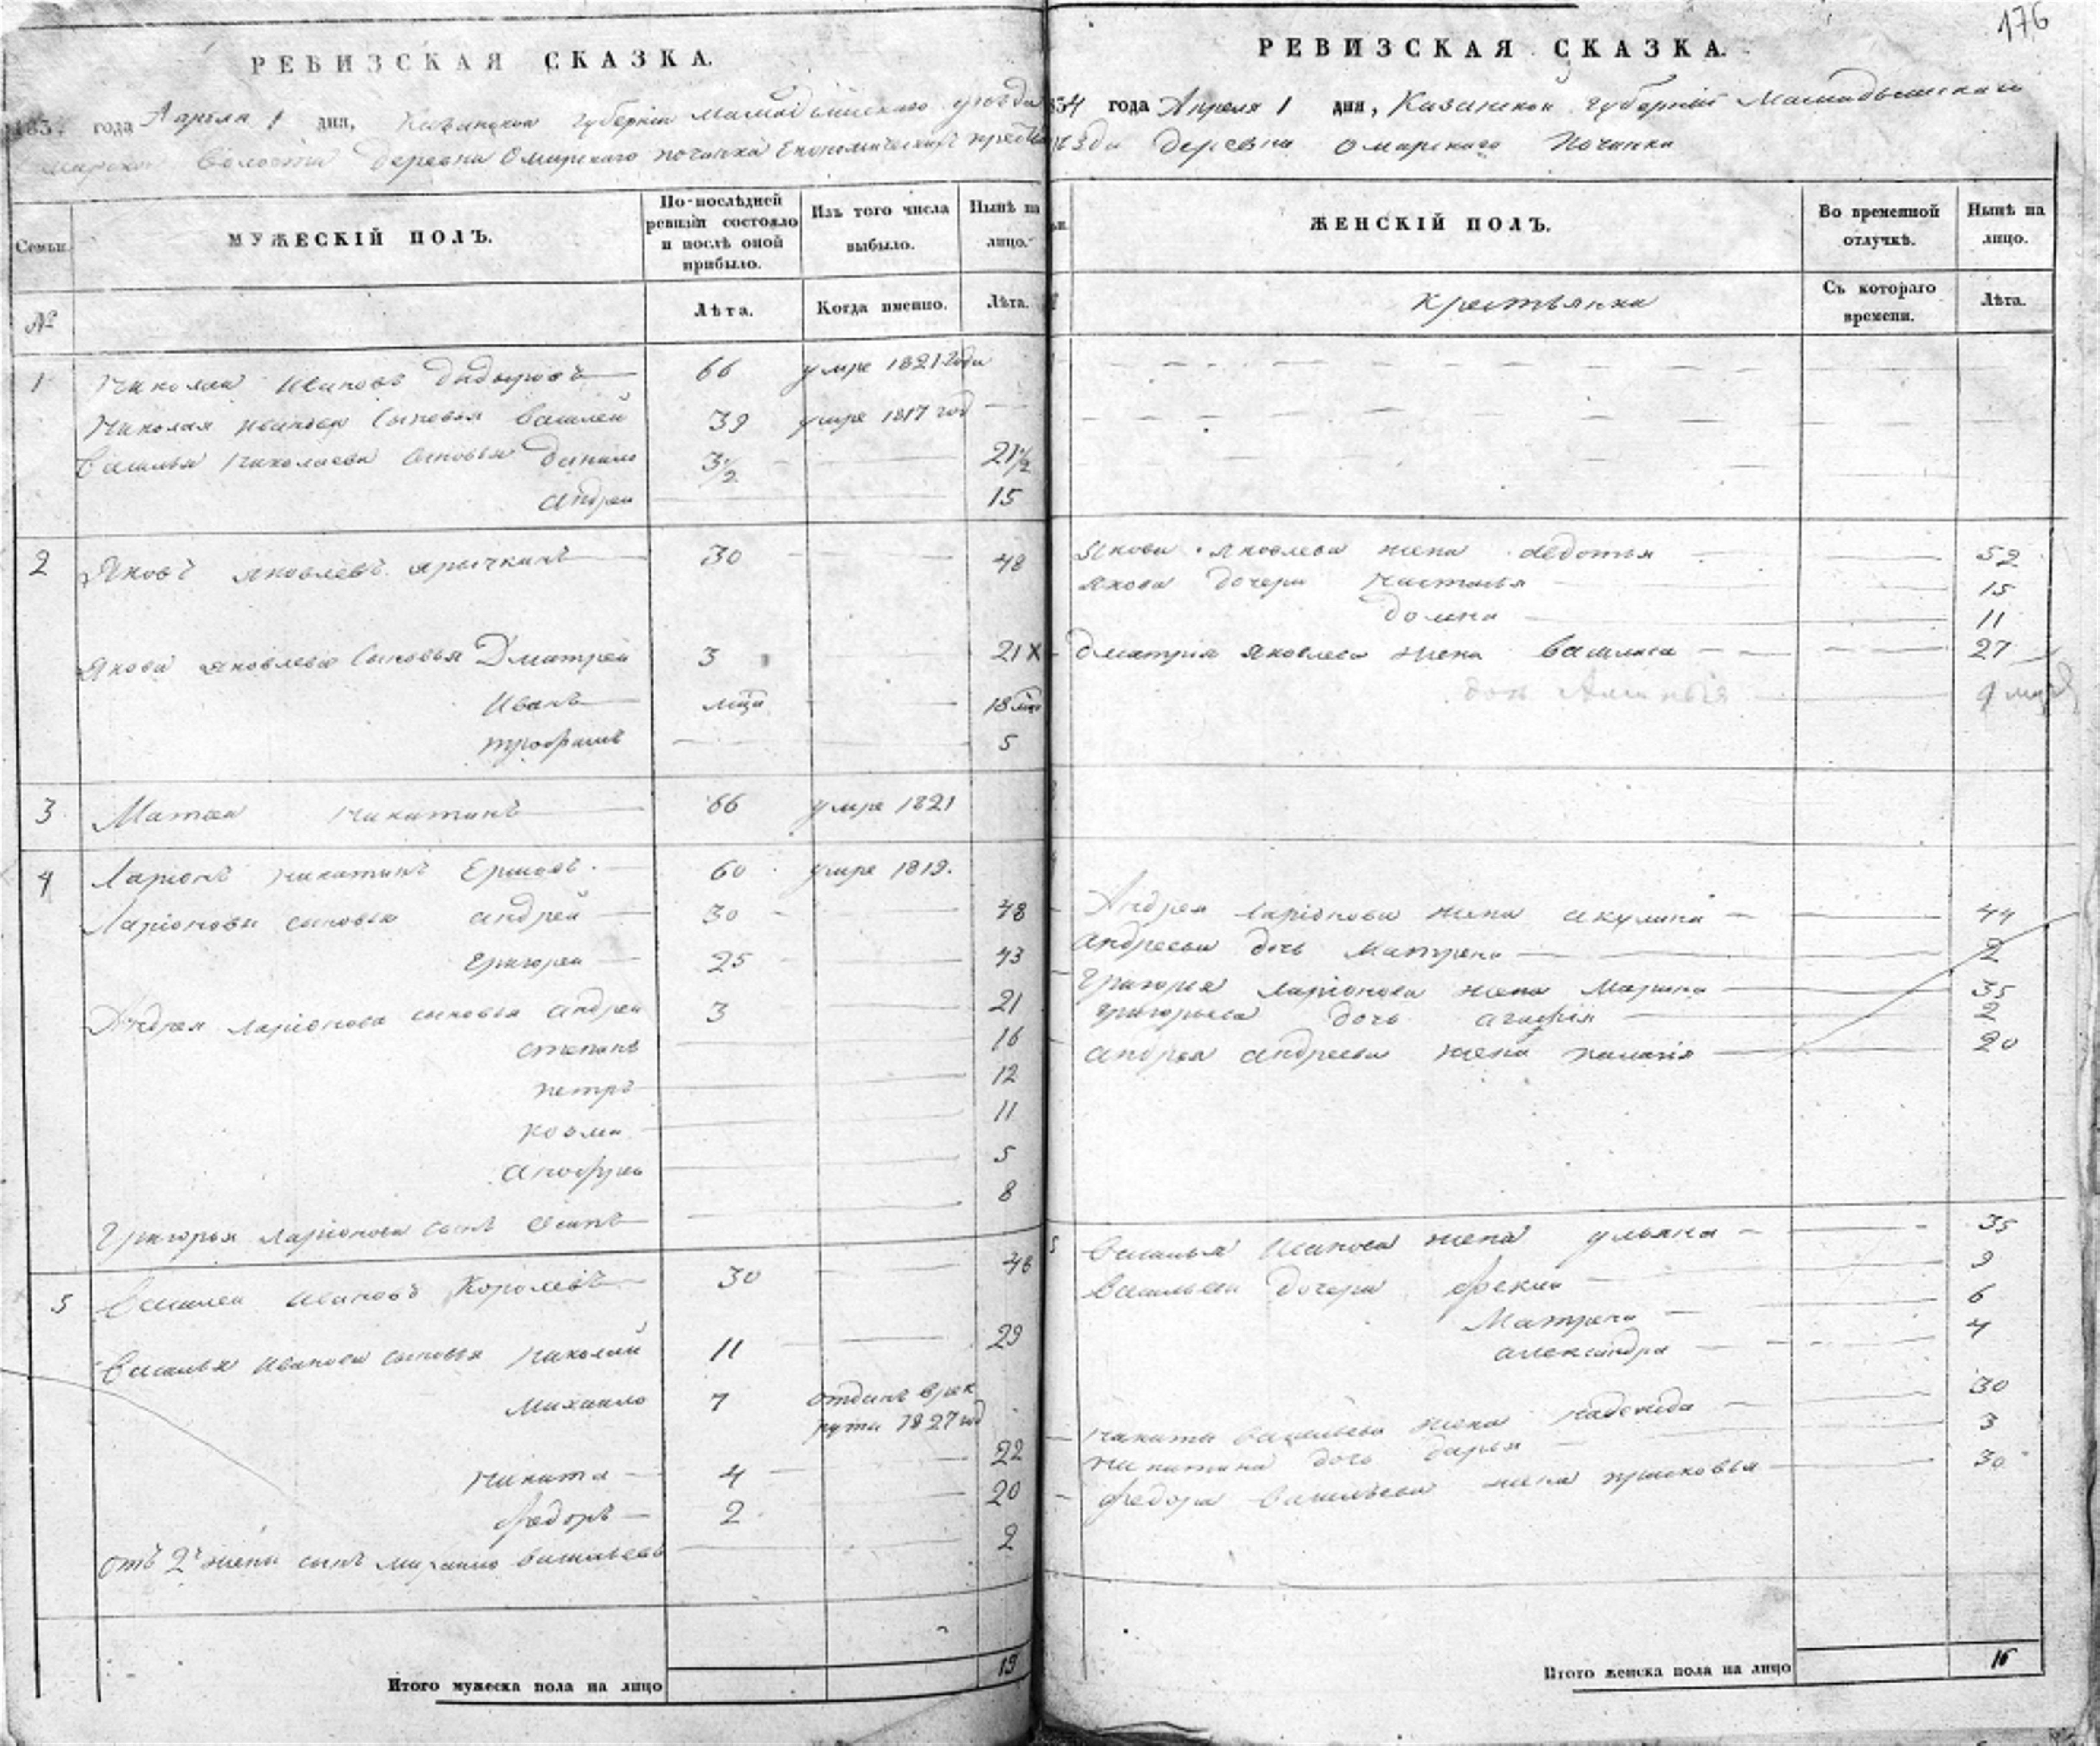 РЕВИЗСКАЯ СКАЗКА.
183 года Апреля 1 дня, Казанской губернии Мамадышского уезда
Омарской волости деревни Омарскаго починка Економических крестьян
Семьи.
МУЖЕСКІЙ ПОЛЪ.
По-послѣдней ревизіи состояло и послѣ оной прибыло.
Изъ того числа выбыло.
Нынѣ на лицо.
№
Лѣта.
Когда именно.
Лѣта.
1 Николай Ивановъ 66 умре 1821 года
Николая Иванова сыновья Василей 39 умре 1817 год
Василья Николаева сыновья Данило 3 1/2 21 1/2
Андрей 15
2 Яковъ Яковлевъ Ярычкинъ 30 48
Якова Яковлева сыновья Дмитрей 3 21 X
Иванъ 18
Трофимъ 5
3 Матвей Никитинъ 66 умре 1821
4 Ларіонъ Никитинъ Ершовъ 60 умре 1819.
Ларіоновы сыновья Андрей 30 48
Григорей 25 43
Андрея Ларіонова сыновья Андрей 3 21
Степанъ 16
Петръ 12
Козма 11
5
Григорья Ларіонова сынъ Осипъ 8
5 Василей Ивановъ Королевъ 30 48
Василья Иванова сыновья Николай 11 29
Михайло 7 отданъ в рек
руты 1827 год
Никита 4 22
Федоръ 2 20
отъ 2й жены сынъ Михайло Васильевъ 2
Итого мужеска пола на лицо 19
176
РЕВИЗСКАЯ СКАЗКА.
34 года Апреля 1 дня, Казанской губерніи Мамадышскаго
уезда деревни Омарскаго Починка
ЖЕНСКІЙ ПОЛЪ.
Во временной отлучкѣ.
Нынѣ на лицо.
Крестьянка
Съ котораго времени.
Лѣта.
Якова Яковлева жена Авдотья 52
Якова дочери Настасья 15
Домна 11
Дмитрія Яковлева жена Василиса 27
дочь
Андрея Ларіонова жена Акулина 44
Андреева дочь Матрена 2
Григорья Ларіонова жена Марина 35
Григорьева дочь Агафія 2
Андрея Андреева жена Палагія 20
5 Василья Иванова жена Ульяна 35
Васильевы дочери Фекла 9
Матрена 6
Александра 4
Никиты Васильева жена Надежда 30
Никитина дочь Дарья 3
Федора Васильева жена Прасковья 30
Итого женска пола на лицо 16